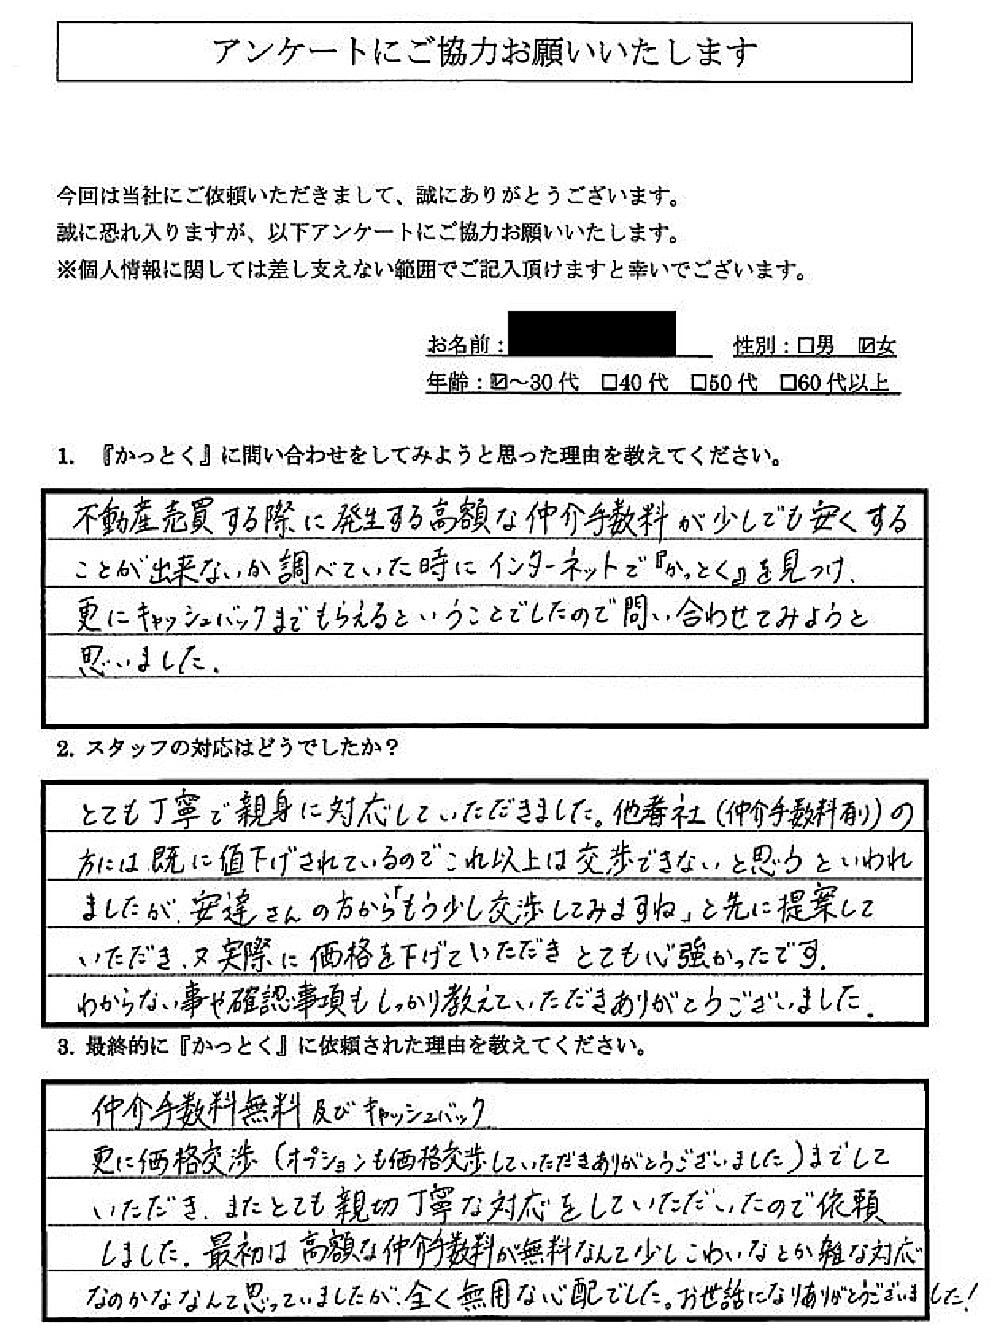 アンケートにご協力お願いいたします
今回は当社にご依頼いただきまして、誠にありがとうございます。
誠に恐れ入りますが、以下アンケートにご協力お願いいたします。
※個人情報に関しては差し支えない範囲でご記入頂けますと幸いでございます。
お名前: 性別:□男 ☑女
年齢:☑~30代 □40代 □50代 □60代以上
1. 『かっとく』に問い合わせをしてみようと思った理由を教えてください。
不動産売買する際に発生する高額な仲介手数料が少しでも安くする
ことが出来ないか調べていた時にインターネットで『かっとく』を見つけ、
更にキャッシュバックまでもらえるということでしたので問い合わせてみようと
思いました。
2. スタッフの対応はどうでしたか?
とても丁寧で親身に対応していただきました。他番社(仲介手数料有り)の
方には既に値下げされているのでこれ以上は交渉できないと思うといわれ
ましたが、安達さんの方から「もう少し交渉してみますね」と先に提案して
いただき、又実際に価格を下げていただきとても心強かったです。
わからない事や確認事項もしっかり教えていただきありがとうございました。
3. 最終的に『かっとく』に依頼された理由を教えてください。
仲介手数料無料及びキャッシュバック
更に価格交渉(オプションも価格交渉していただきありがとうございました)までして
いただき、またとても親切丁寧な対応をしていただいたので依頼
しました。最初は高額な仲介手数料が無料なんて少しこわいなとか雑な対応
なのかななんて思っていましたが、全く無用な心配でした。お世話になりありがとうございました!